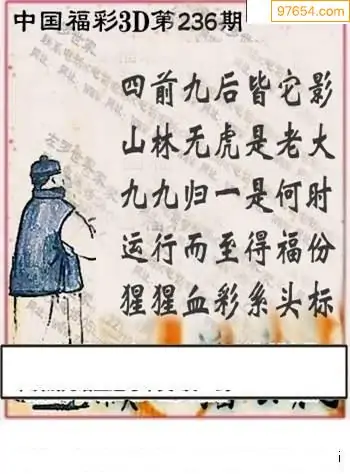 97654.com
中国福彩3D第236期
四前九后皆它影
山林无虎是老大
九九归一是何时
运行而至得福份
猩猩血彩系头标
i